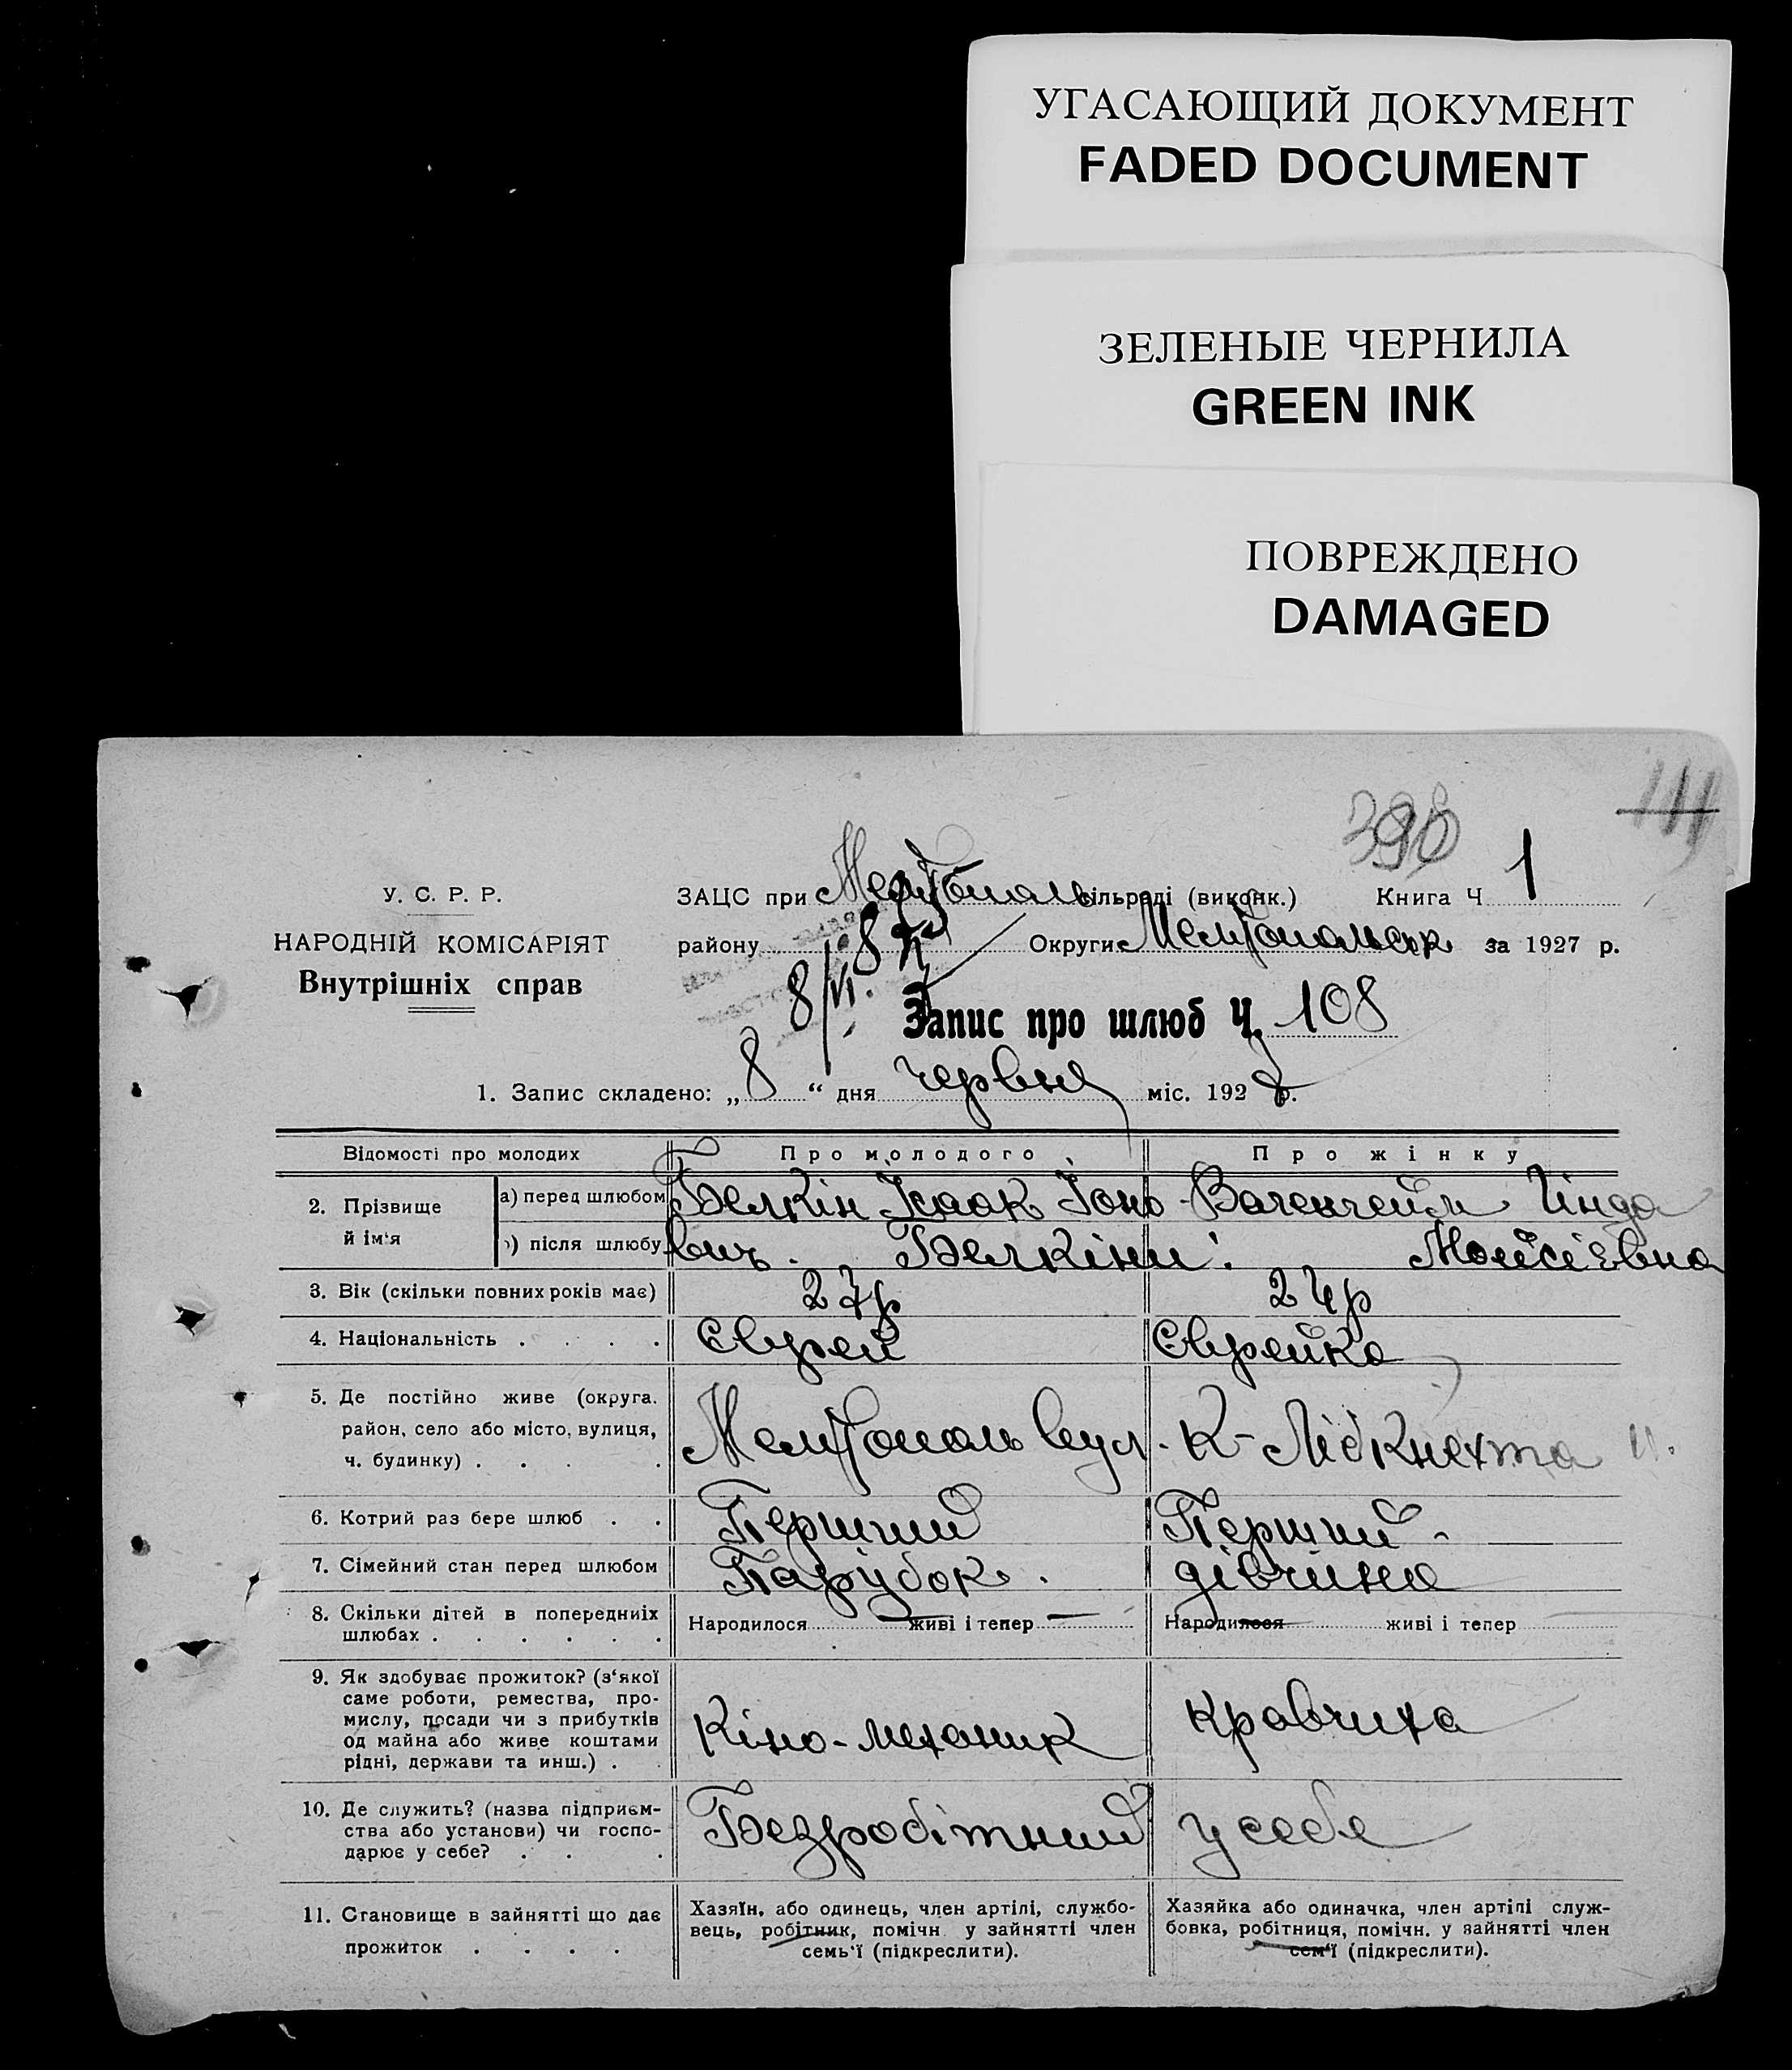 УГАСАЮЩИЙ ДОКУМЕНТ
FADED DOCUMENT
ЗЕЛЕНЫЕ ЧЕРНИЛА
GREEN INK
ПОВРЕЖДЕНО
DAMAGED
390
У. С. Р. Р.
ЗАЦС при Мелітополь сільраді (виконк.) Книга Ч 1
НАРОДНІЙ КОМІСАРІЯТ
району Округи Мелітопольськ за 1927 р.
Внутрішніх справ
8/VI.
Запис про шлюб Ч. 108
1. Запис складено: „ 8 “ дня червня міс. 192 р.
Відомості про молодих Про молодого Про жінку
2. Прізвище й ім‘я а) перед шлюбом Белкін Ісаак Іоно- Вагенгейм Гінда
) після шлюбу вич. Белкіни. Мойсіївна
3. Вік (скільки повних років має) 27р 24р
4. Національність . . . . Єврей Єврейка
5. Де постійно живе (округа.
район, село або місто, вулиця,
ч. будинку) . . . . Мелітополь вул. К-Лібкнехта 11.
6. Котрий раз бере шлюб . . Перший Перший
7. Сімейний стан перед шлюбом Парубок. дівчина
8. Скільки дітей в попередниіх
шлюбах . . . . . . Народилося — живі і тепер — Народилося живі і тепер
9. Як здобуває прожиток? (з‘якої
саме роботи, ремества, про-
мислу, посади чи з прибутків
од майна або живе коштами
рідні, держави та инш.) . . Кіно-механик кравчиха
10. Де служить? (назва підприєм-
ства або установи) чи госпо-
дарює у себе? . . . Безробітний у себе
11. Становище в зайнятті що дає
прожиток . . . .
Хазяїн, або одинець, член артілі, службо-
вець, робітник, помічн. у зайнятті член
семь‘ї (підкреслити).
Хазяйка або одиначка, член артілі служ-
бовка, робітниця, помічн. у зайнятті член
сем‘ї (підкреслити).